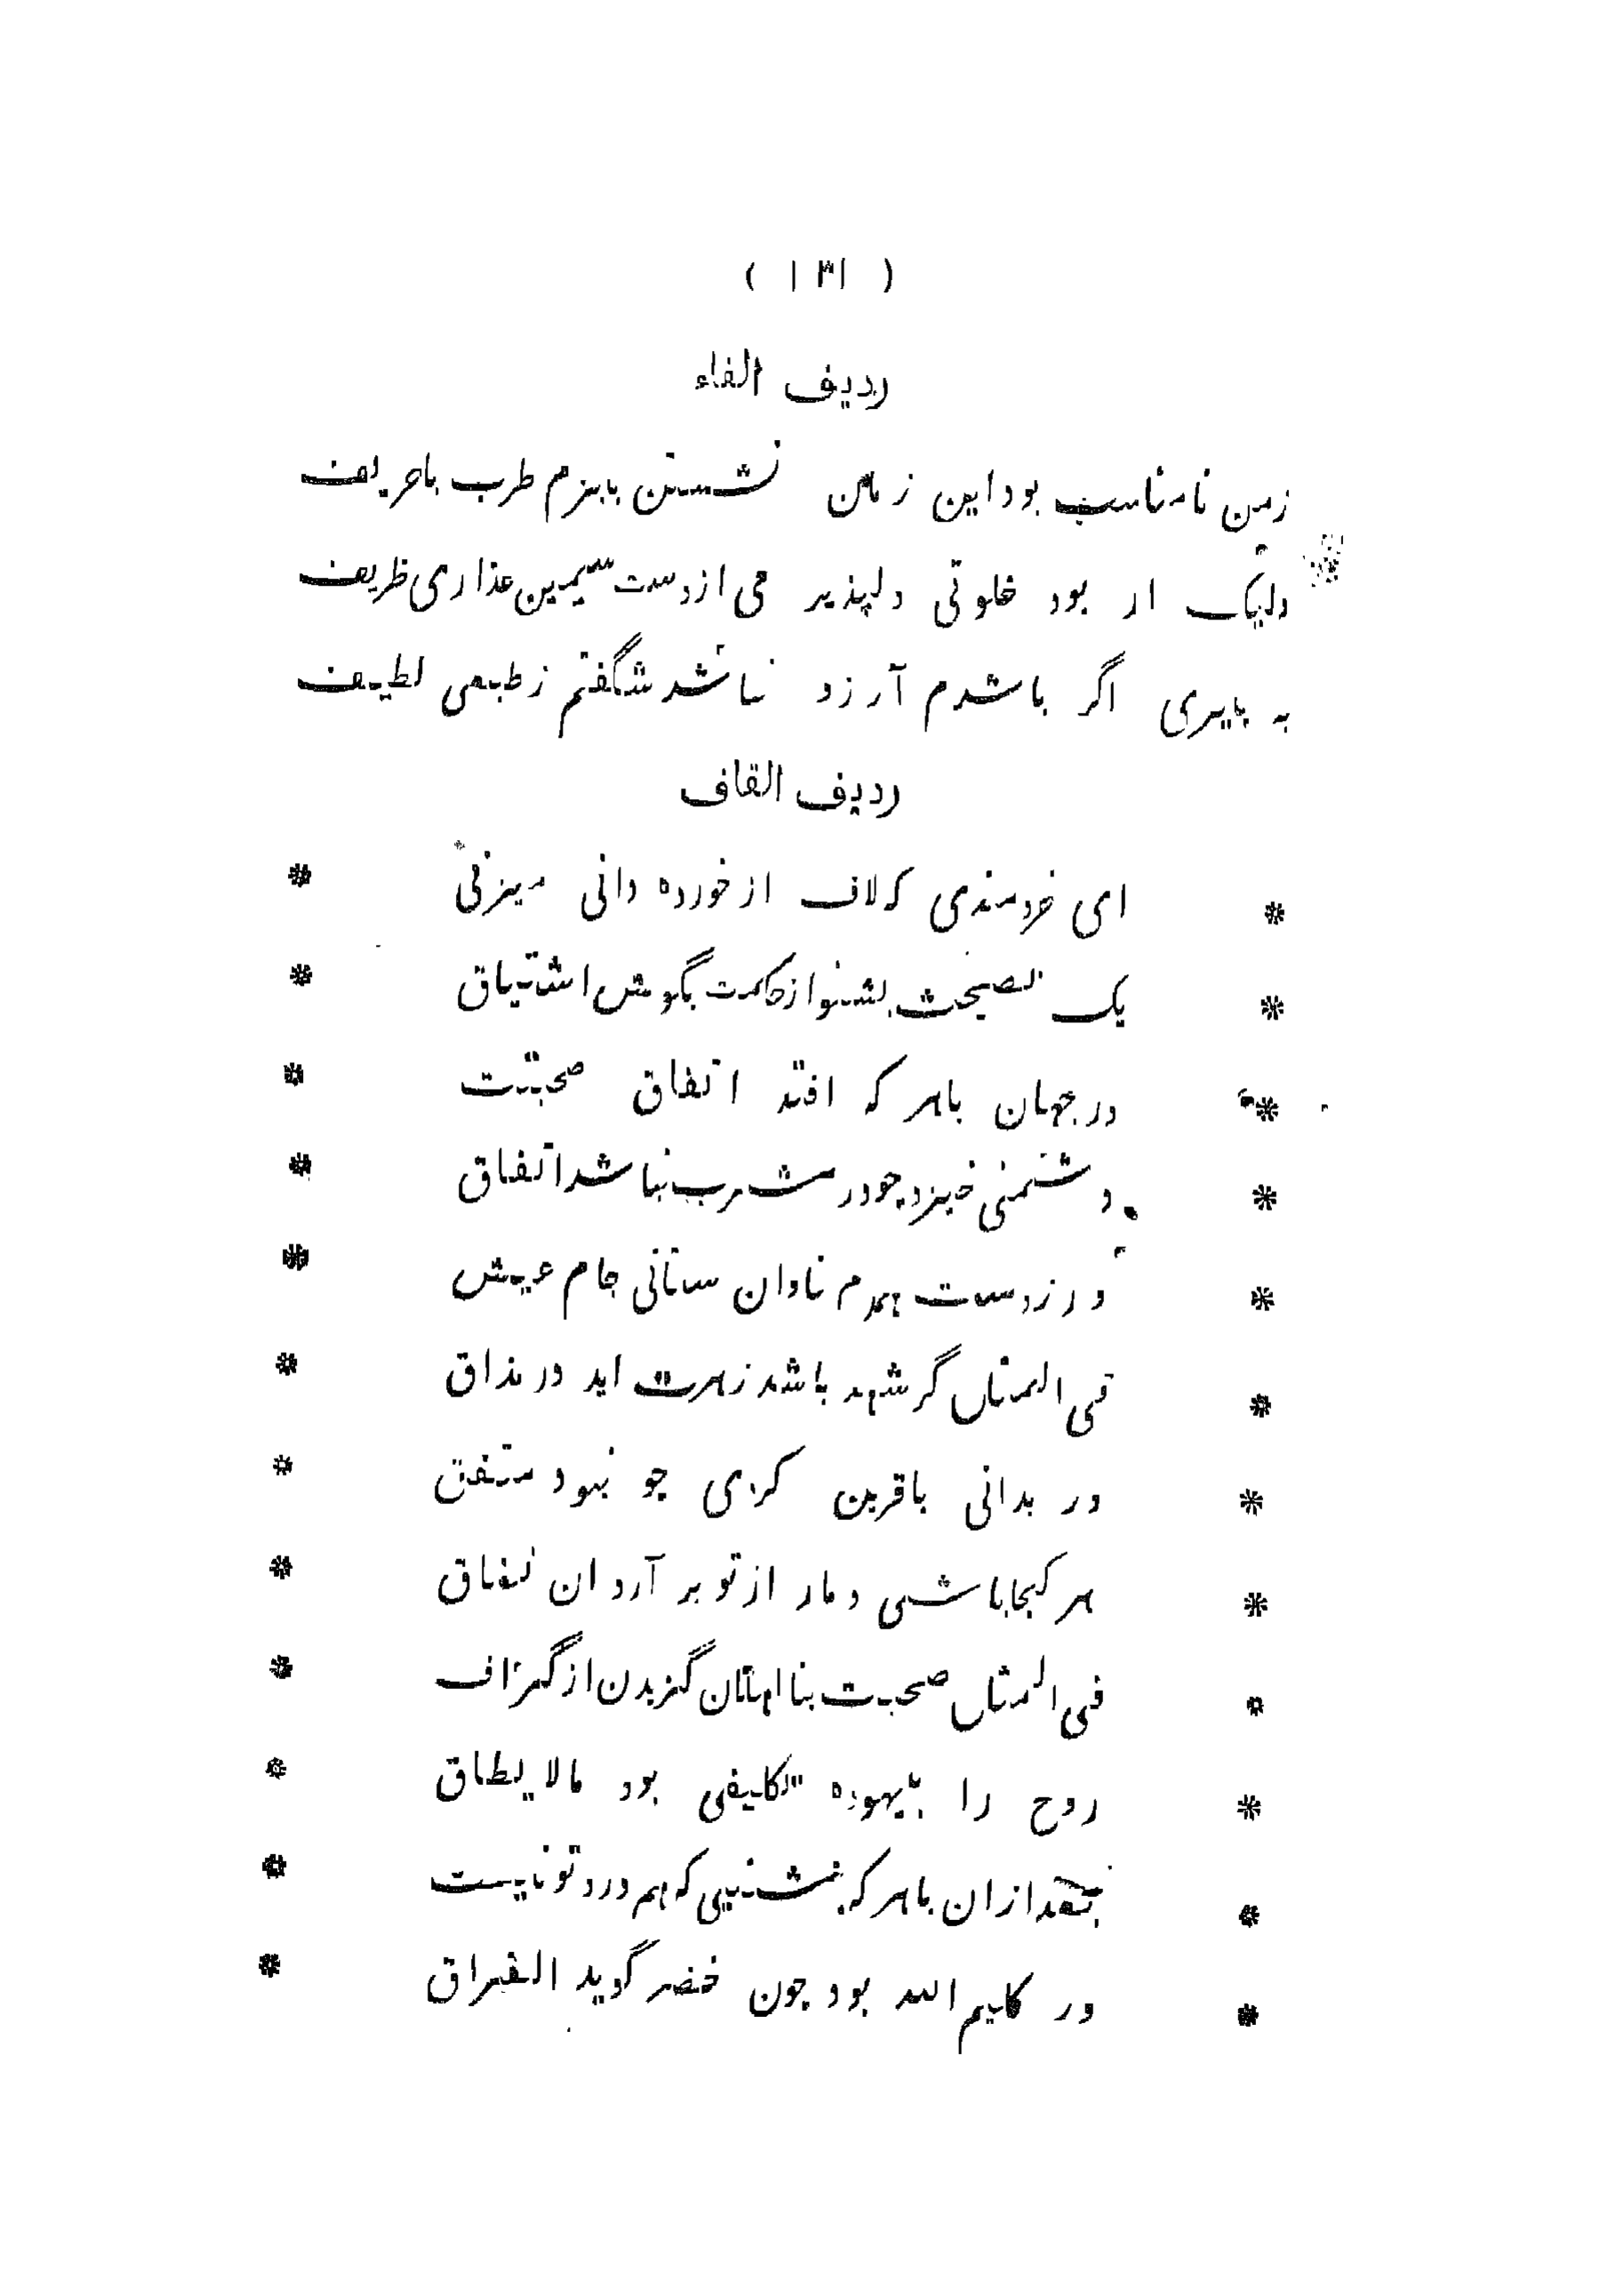 ( ۱۳۱ )
ردیف الفاء
زمن نامناسب بود این زمان نشستن ببزم طرب باحریف
ولیک ار بود خلوتی دلپذیر می از دست سیمین عذاری ظریف
به پیری اگر باشدم آرزو نباشد شگفتم ز طبعی لطیف
ردیف القاف
* ای خردمندی که لاف از خورده دانی میزنی *
* یک نصیحت بشنو از حکمت بگوش اشتیاق *
* در جهان باهر که افتد اتفاق صحبتت *
* دشمنی خیزد چو در مشرب نباشد اتفاق *
* ور ز دست همدم نادان ستانی جام عیش *
* فی المثل گر شهد باشد زهرت اید در مذاق *
* ور بدانی باقرین کردی چو نبود متفق *
* هر کجا باشی دمار از تو بر آرد ان نفاق *
* فی المثل صحبت بنااهلان گزیدن از گزاف *
* روح را بیهوده تکلیفی بود مالا یطاق *
* بعد ازان باهر که بنشینی که هم درد تو نیست *
* ور کلیم الله بود چون خضر گوید الفراق *